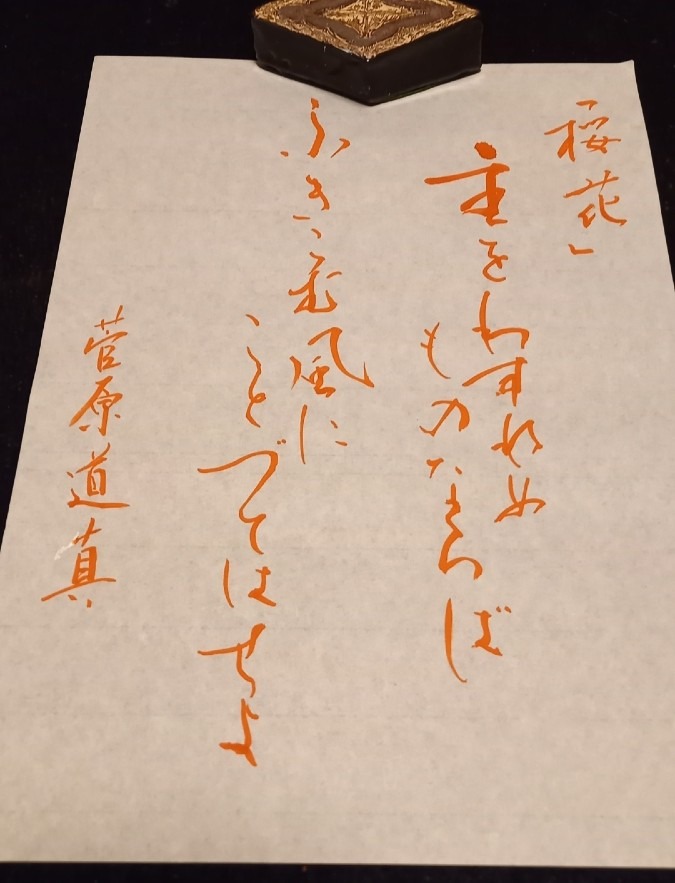 「桜花」
主をわすれぬ
ものならば
ふきこむ風に
ことづてはせよ
菅原道真